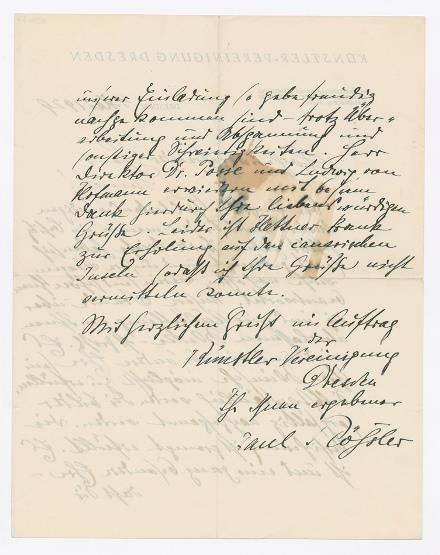 unserer Einladung so gebefreudig
nachgekommen sind - trotz Über=
arbeitung und Abspannung und
sonstiger Schwierigkeiten. Herr
Direktor Dr. Posse und Ludwig von
Hofmann erwidern mit bestem
Dank hierdurch Ihre liebenswürdigen
Grüße. Leider ist Hettner krank
zur Erholung auf den canarischen
Inseln, sodaß ich Ihre Grüße nicht
vermitteln konnte.
Mit herzlichem Gruß im Auftrag
der
Künstler Vereinigung
Dresden
Ihr Ihnen ergebener
Paul Rößler